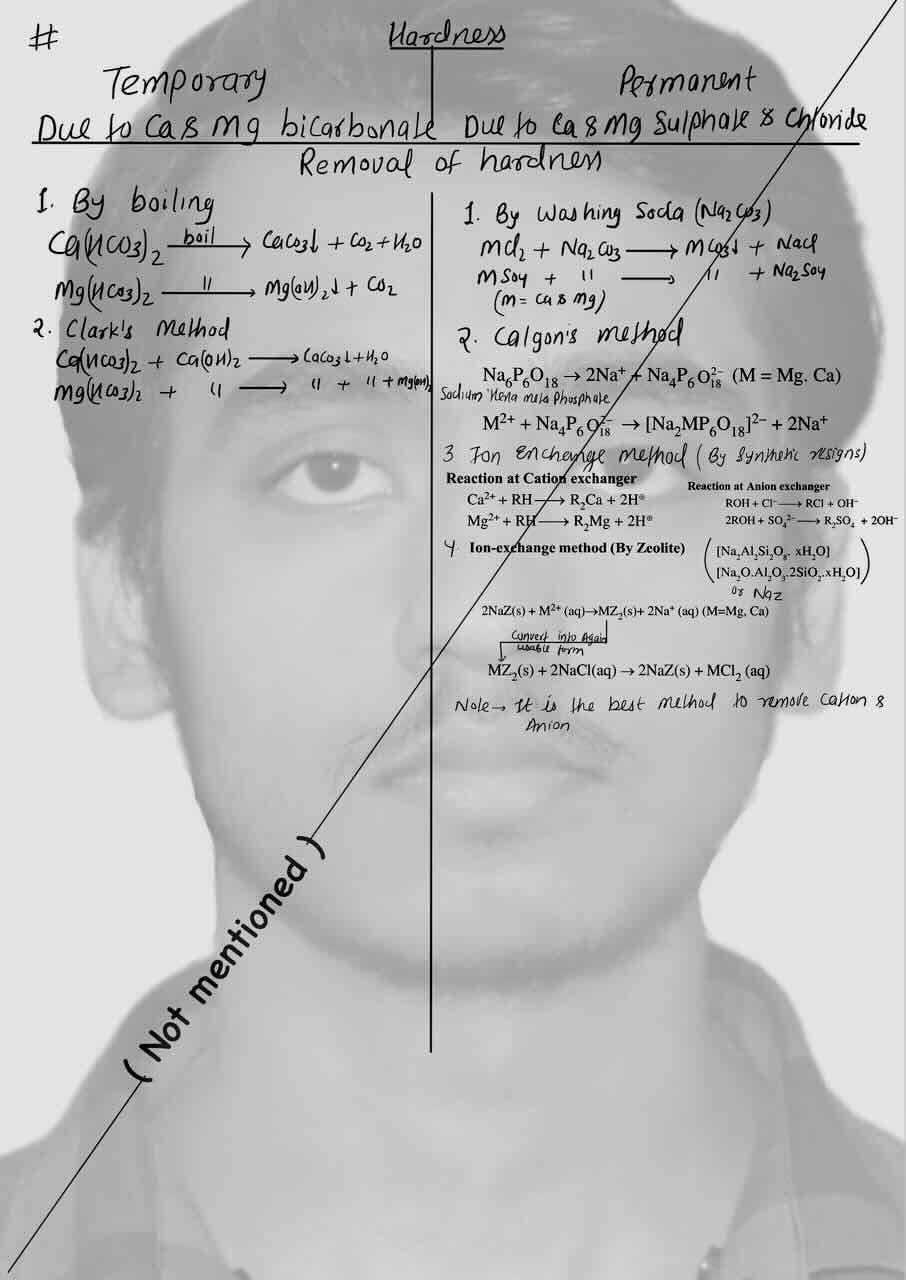 #
Hardness
Temporary
Permanent
Due to Ca & Mg bicarbonate
Due to Ca & Mg Sulphate & Chloride
Removal of hardness
1. By boiling
Ca(HCO3)2 boil → CaCO3↓ + CO2 + H2O
Mg(HCO3)2 " → Mg(OH)2↓ + CO2
2. Clark's Method
Ca(HCO3)2 + Ca(OH)2 → CaCO3↓ + H2O
Mg(HCO3)2 + " → " + " + Mg(OH)2
1. By Washing Soda (Na2CO3)
MCl2 + Na2CO3 → MCO3↓ + NaCl
MSO4 + " → " + Na2SO4
(M = Ca & Mg)
2. Calgon's method
Na₆P₆O₁₈ → 2Na⁺ + Na₄P₆O₁₈²⁻ (M = Mg. Ca)
Sodium Hexa meta Phosphate
M²⁺ + Na₄P₆O₁₈²⁻ → [Na₂MP₆O₁₈]²⁻ + 2Na⁺
3 Ion Exchange method (By Synthetic resigns)
Reaction at Cation exchanger
Ca²⁺ + RH → R₂Ca + 2H⊕
Mg²⁺ + RH → R₂Mg + 2H⊕
Reaction at Anion exchanger
ROH + Cl⁻ → RCl + OH⁻
2ROH + SO₄²⁻ → R₂SO₄ + 2OH⁻
4. Ion-exchange method (By Zeolite)
[Na₂Al₂Si₂O₈. xH₂O]
[Na₂O.Al₂O₃.2SiO₂.xH₂O]
or NaZ
2NaZ(s) + M²⁺ (aq)→MZ₂(s)+ 2Na⁺ (aq) (M=Mg, Ca)
Convert into Again
usable form
MZ₂(s) + 2NaCl(aq) → 2NaZ(s) + MCl₂ (aq)
Note → It is the best method to remove Cation &
Anion
( Not mentioned )